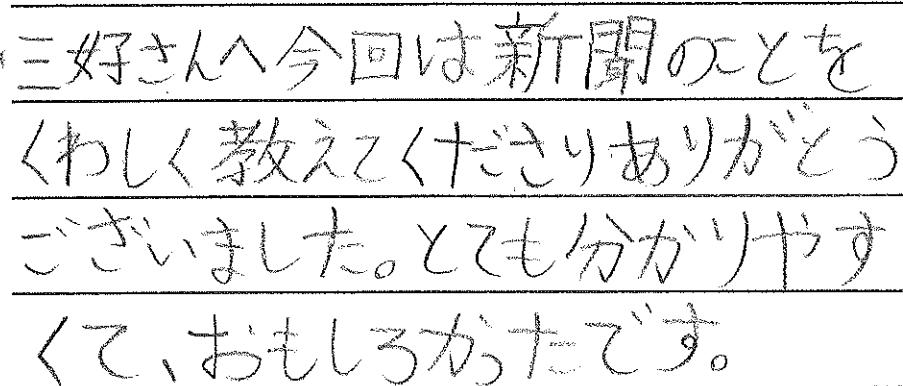 三好さんへ今回は新聞のことを
くわしく教えてくださりありがとう
ございました。とても分かりやす
くて、おもしろかったです。